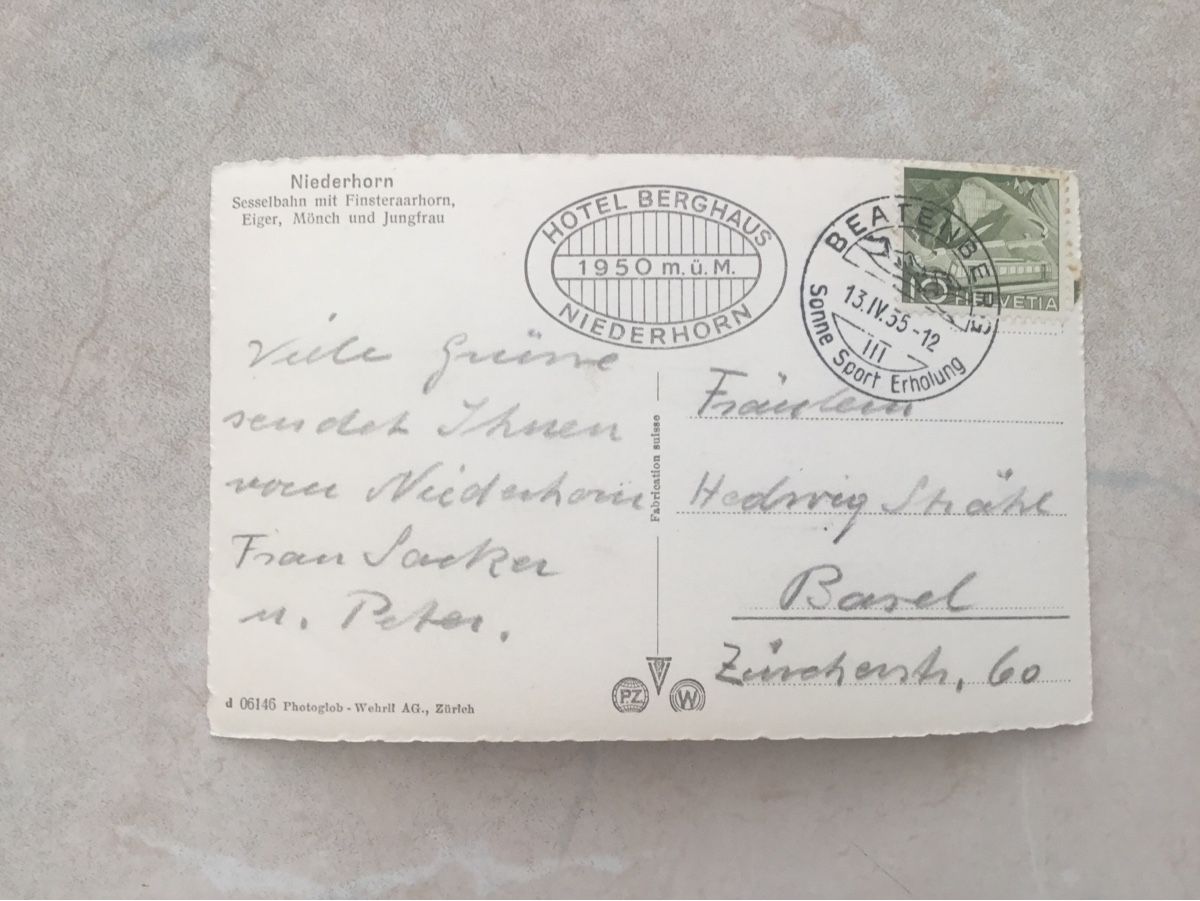 Niederhorn
Sesselbahn mit Finsteraarhorn,
Eiger, Mönch und Jungfrau
HOTEL BERGHAUS
1950 m.ü.M.
NIEDERHORN
BEATENBERG
13.IV.55-12
III
Sonne Sport Erholung
10 HELVETIA
Viele Grüsse
sendet Ihnen
vom Niederhorn
Frau Sacker
u. Peter.
Fabrication suisse
Fräulein
Hedwig Strähl
Basel
Zürcherstr. 60
d 06146 Photoglob - Wehrli AG., Zürich
PZ
W